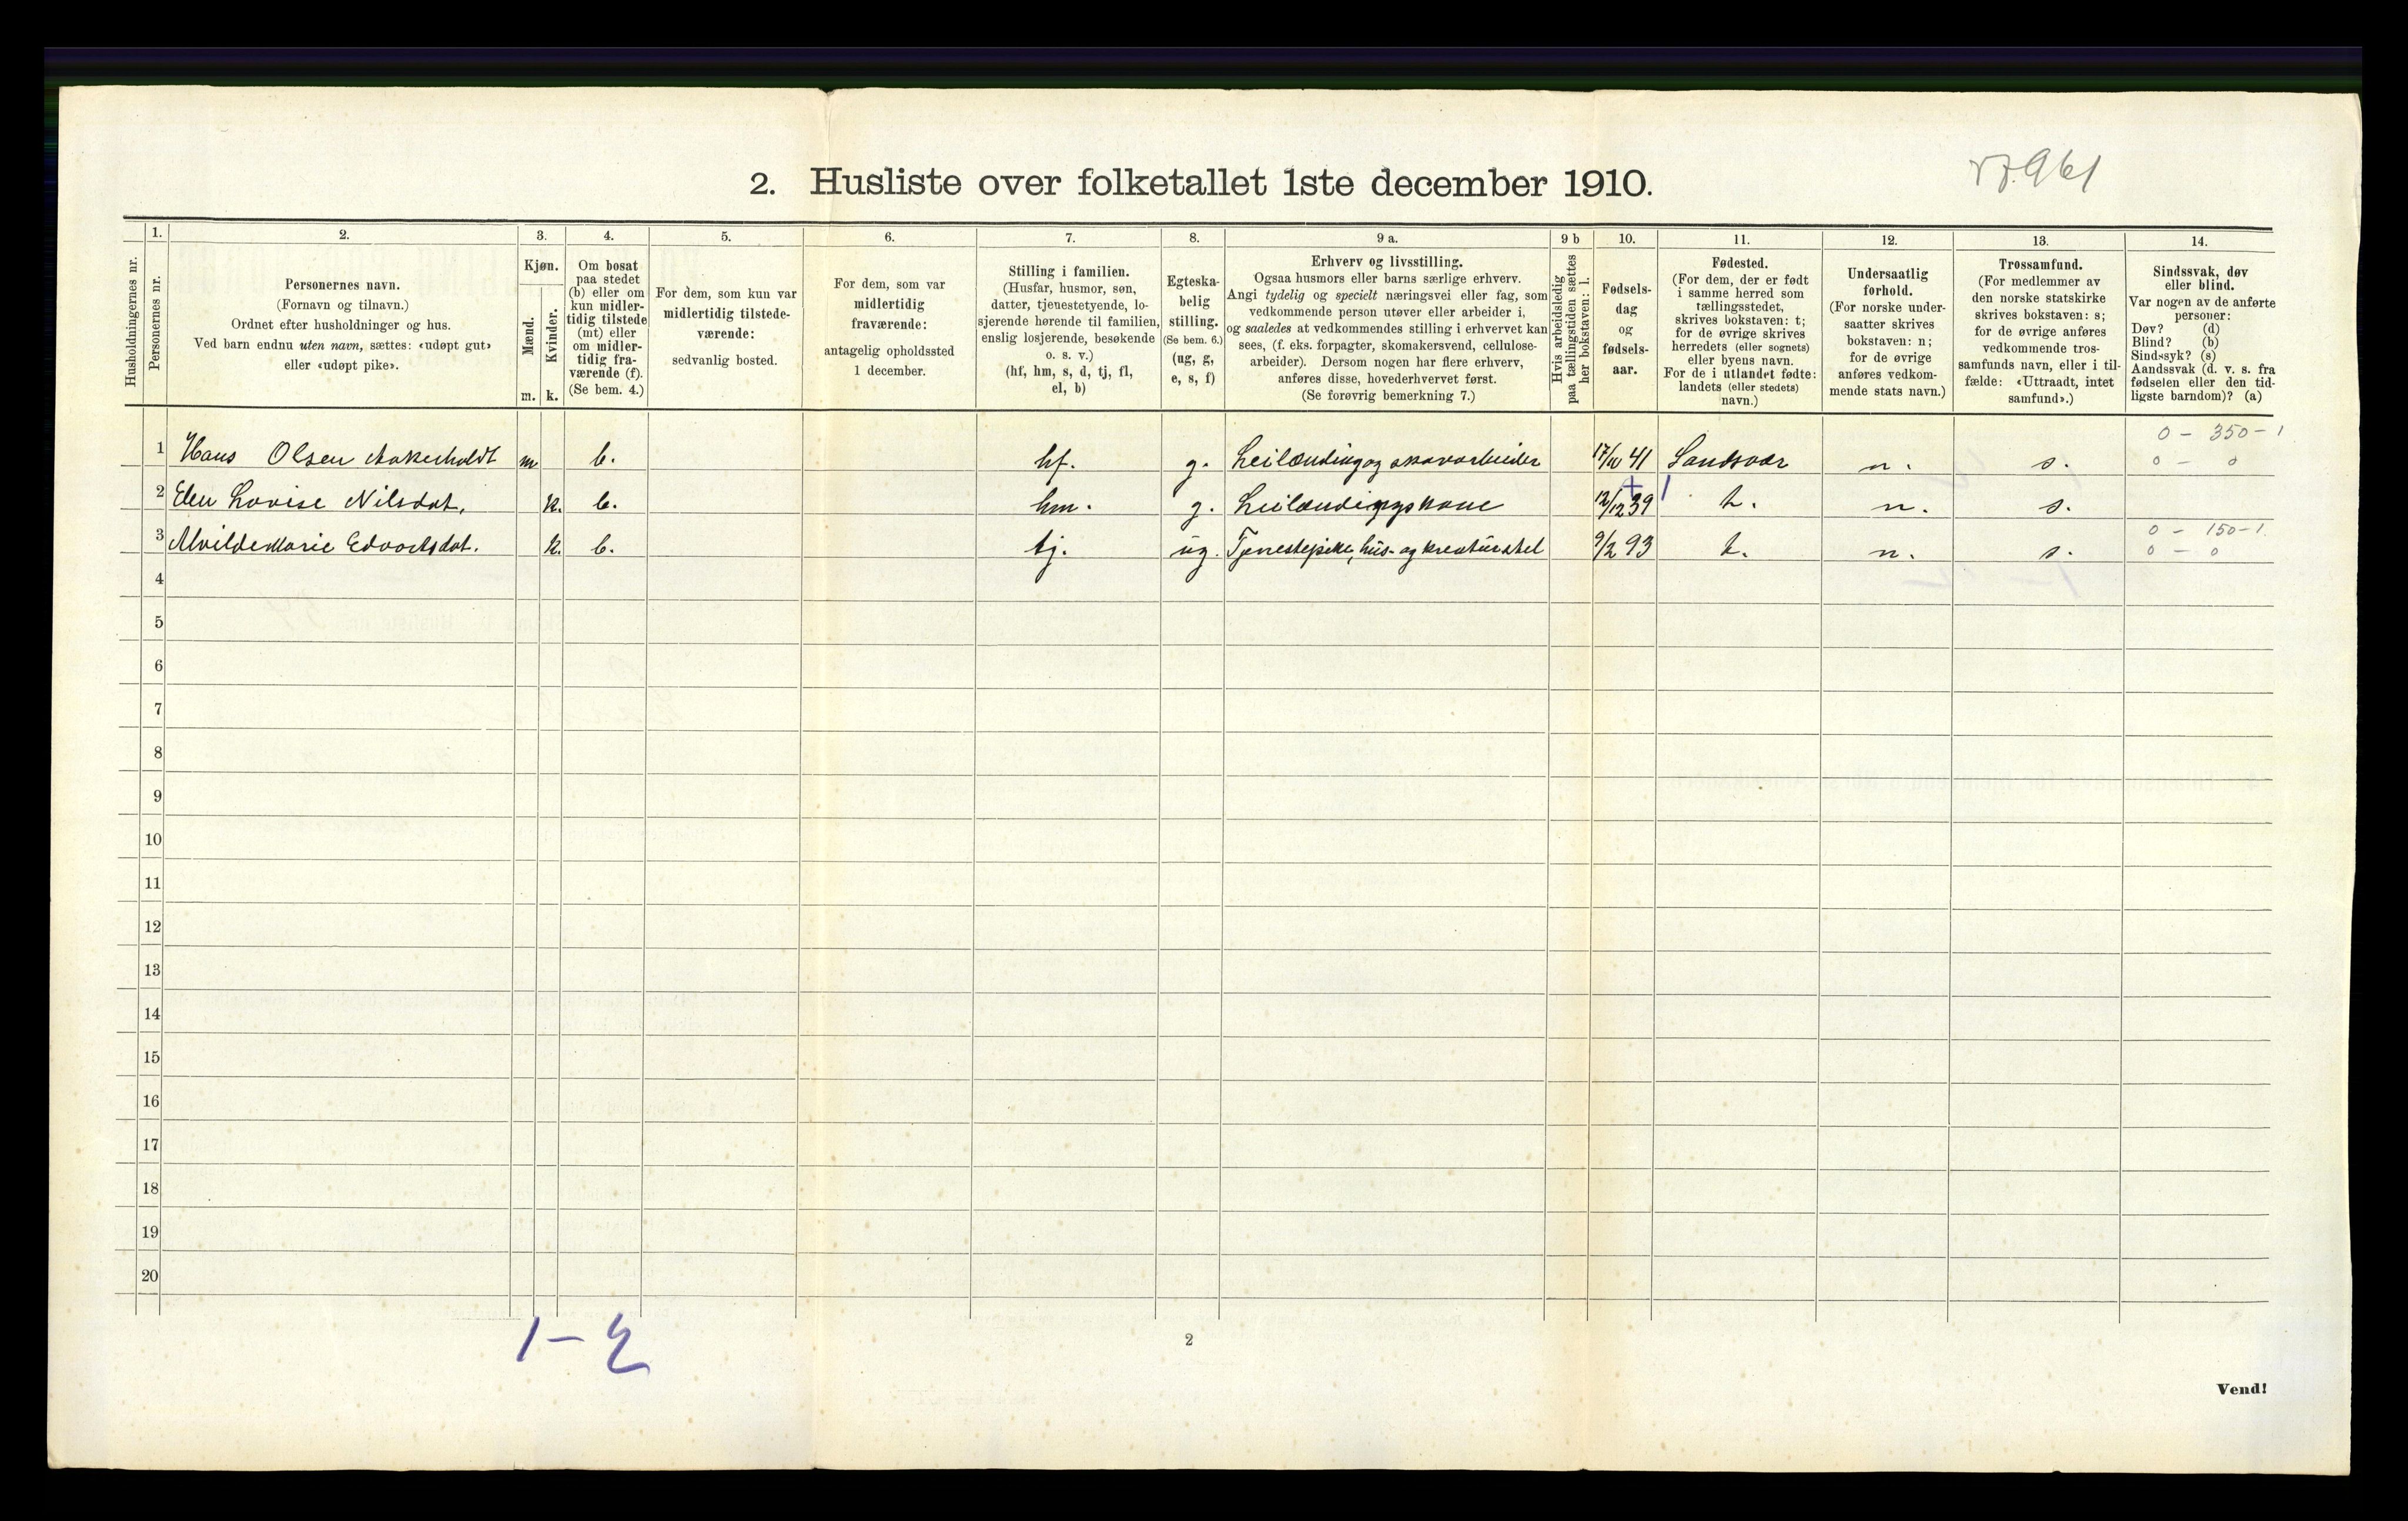 2. Husliste over folketallet 1ste december 1910.
Husholdningernes nr.
1.
Personernes nr.
2.
Personernes navn.
(Fornavn og tilnavn.)
Ordnet efter husholdninger og hus.
Ved barn endnu uten navn, sættes: «udøpt gut»
eller «udøpt pike».
3.
Kjøn.
Mænd.
Kvinder.
m. k.
4.
Om bosat
paa stedet
(b) eller om
kun midler-
tidig tilstede
(mt) eller
om midler-
tidig fra-
værende (f).
(Se bem. 4.)
5.
For dem, som kun var
midlertidig tilstede-
værende:
sedvanlig bosted.
6.
For dem, som var
midlertidig
fraværende:
antagelig opholdssted
1 december.
7.
Stilling i familien.
(Husfar, husmor, søn,
datter, tjenestetyende, lo-
sjerende hørende til familien,
enslig losjerende, besøkende
o. s. v.)
(hf, hm, s, d, tj, fl,
el, b)
8.
Egteska-
belig
stilling.
(Se bem. 6.)
(ug, g,
e, s, f)
9 a.
Erhverv og livsstilling.
Ogsaa husmors eller barns særlige erhverv.
Angi tydelig og specielt næringsvei eller fag, som
vedkommende person utøver eller arbeider i,
og saaledes at vedkommendes stilling i erhvervet kan
sees, (f. eks. forpagter, skomakersvend, cellulose-
arbeider). Dersom nogen har flere erhverv,
anføres disse, hovederhvervet først.
(Se forøvrig bemerkning 7.)
9 b
Hvis arbeidsledig
paa tællingstiden sættes
her bokstaven: l.
10.
Fødsels-
dag
og
fødsels-
aar.
11.
Fødested.
(For dem, der er født
i samme herred som
tællingsstedet,
skrives bokstaven: t;
for de øvrige skrives
herredets (eller sognets)
eller byens navn.
For de i utlandet fødte:
landets (eller stedets)
navn.)
12.
Undersaatlig
forhold.
(For norske under-
saatter skrives
bokstaven: n;
for de øvrige
anføres vedkom-
mende stats navn.)
13.
Trossamfund.
(For medlemmer av
den norske statskirke
skrives bokstaven: s;
for de øvrige anføres
vedkommende tros-
samfunds navn, eller i til-
fælde: «Uttraadt, intet
samfund».)
14.
Sindssvak, døv
eller blind.
Var nogen av de anførte
personer:
Døv? (d)
Blind? (b)
Sindssyk? (s)
Aandssvak (d. v. s. fra
fødselen eller den tid-
ligste barndom)? (a)
0 - 350 - 1
1 Hans Olsen Aakerholdt m b. hf. g. Leilænding og skovarbeider 17/10 41 Sandsvær n. s. 0 - 0
2 Elen Lovise Nilsdat. k. b. hm. g. Leilændingskone 12/12 39 t. n. s.
0 - 150 - 1
3 Alvilde Marie Edvartsdat. k. b. tj. ug. Tjenestepike, hus- og kreaturstel 9/2 93 t. n. s. 0 - 0
4
5
6
7
8
9
10
11
12
13
14
15
16
17
18
19
20
1 - 2
2
Vend!